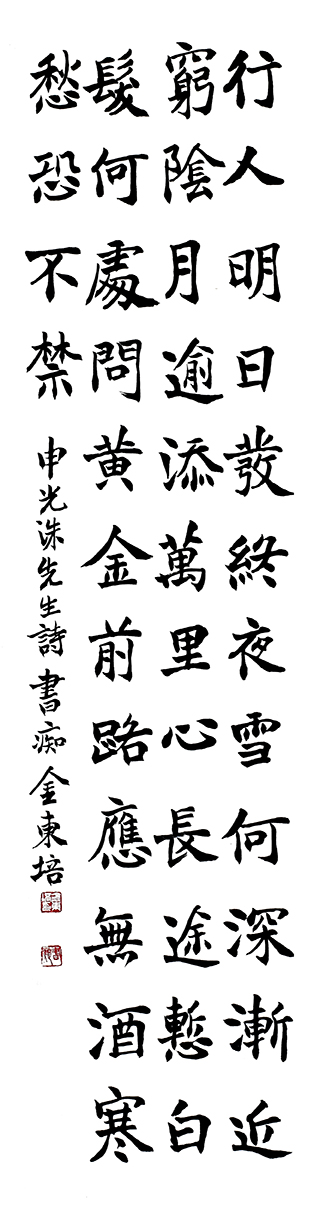 行人明日發終夜雪何深漸近
窮陰月逾添萬里心長途慙白
髮何處問黃金前路應無酒寒
愁恐不禁
申光洙先生詩 書痴 金東培